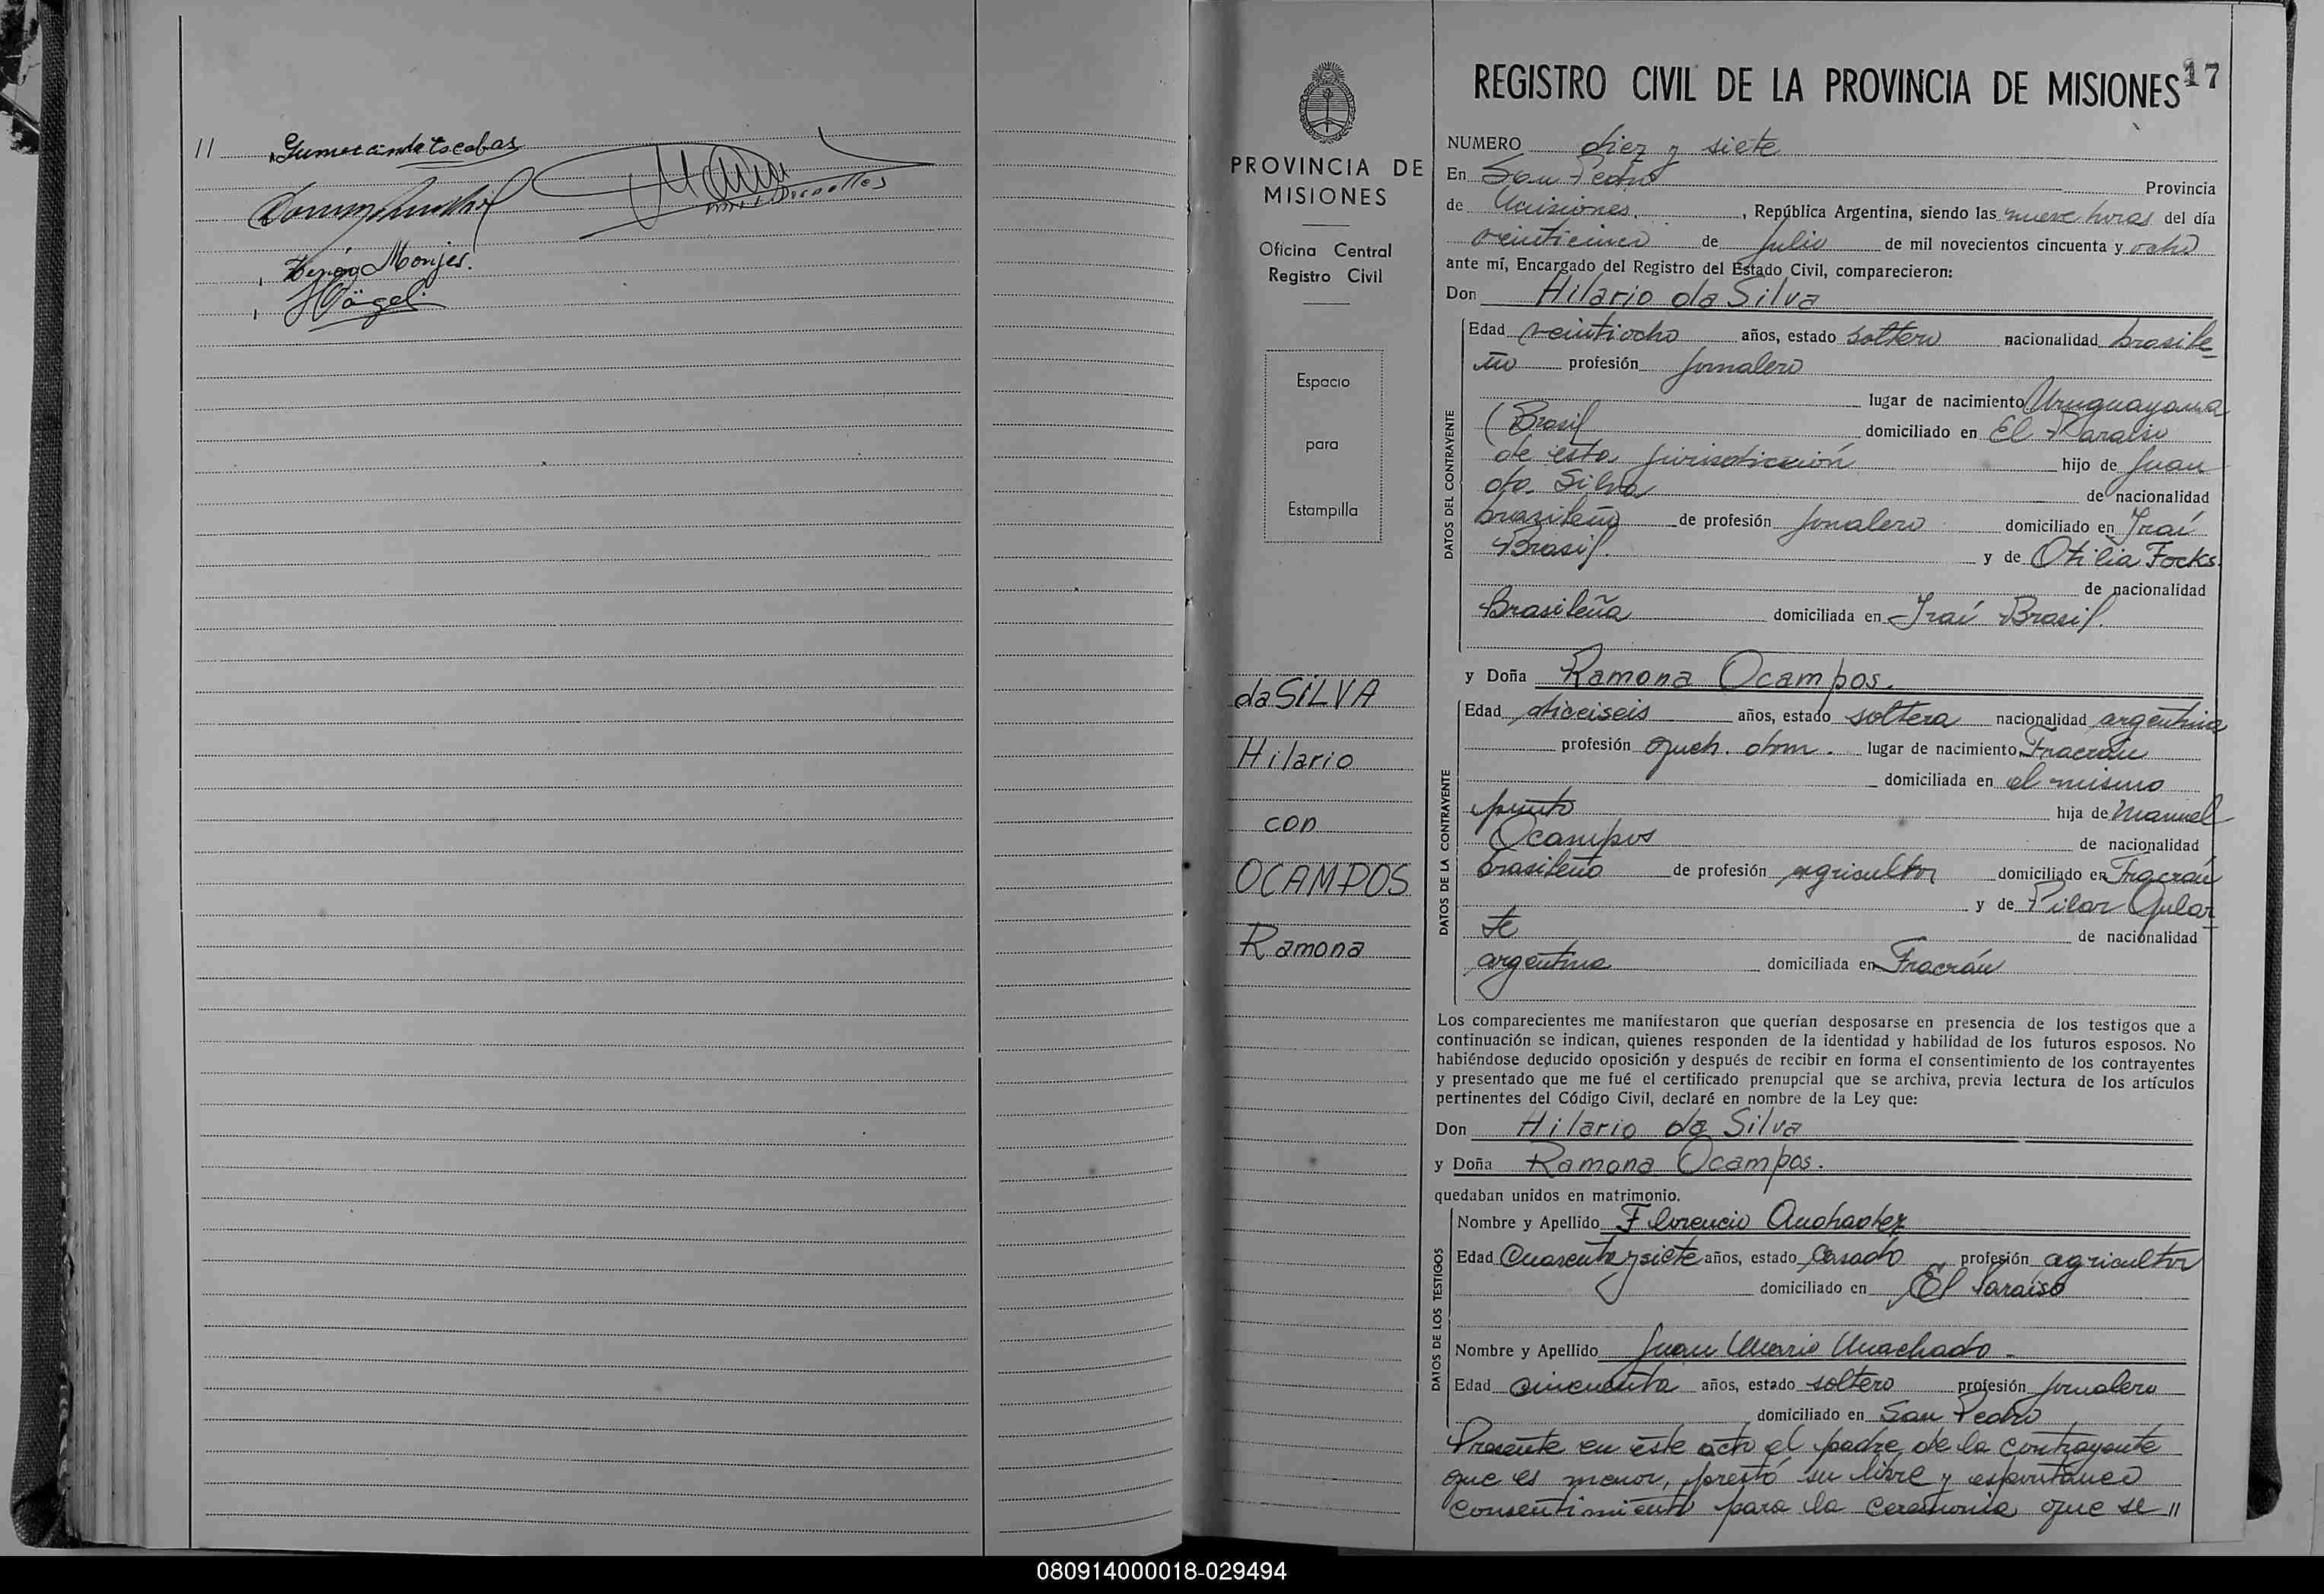 11 Gumercinda Escobar
Monjes.
Vögel.
PROVINCIA DE
MISIONES
Oficina Central
Registro Civil
Espacio
para
Estampilla
da SILVA
Hilario
con
OCAMPOS
Ramona
REGISTRO CIVIL DE LA PROVINCIA DE MISIONES 17
NUMERO diez y siete
En San Pedro Provincia
de Misiones, República Argentina, siendo las nueve horas del día
veinticinco de Julio de mil novecientos cincuenta y ocho
ante mí, Encargado del Registro del Estado Civil, comparecieron:
Don Hilario da Silva
DATOS DEL CONTRAYENTE
Edad veintiocho años, estado soltero nacionalidad brasile
ño profesión jornalero
lugar de nacimiento Uruguayana
(Brasil domiciliado en El Paraiso
de esta jurisdicción hijo de Juan
da Silva de nacionalidad
brasileño de profesión jornalero domiciliado en Iraí
Brasil. y de Otilia Focks.
de nacionalidad
Brasileña domiciliada en Iraí Brasil.
y Doña Ramona Ocampos.
DATOS DE LA CONTRAYENTE
Edad dieciseis años, estado soltera nacionalidad argentina
profesión queh. dom. lugar de nacimiento Fracrán
domiciliada en el mismo
punto hija de Manuel
Ocampos de nacionalidad
brasileño de profesión agricultor domiciliado en Fracrán
y de Pilar Gular
te de nacionalidad
argentina domiciliada en Fracrán
Los comparecientes me manifestaron que querían desposarse en presencia de los testigos que a
continuación se indican, quienes responden de la identidad y habilidad de los futuros esposos. No
habiéndose deducido oposición y después de recibir en forma el consentimiento de los contrayentes
y presentado que me fué el certificado prenupcial que se archiva, previa lectura de los artículos
pertinentes del Código Civil, declaré en nombre de la Ley que:
Don Hilario da Silva
y Doña Ramona Ocampos.
quedaban unidos en matrimonio.
DATOS DE LOS TESTIGOS
Nombre y Apellido Florencio
Edad Cuarenta y siete años, estado Casado profesión agricultor
domiciliado en El Paraíso
Nombre y Apellido Juan Mario Machado
Edad cincuenta años, estado soltero profesión jornalero
domiciliado en San Pedro
Presente en este acto el padre de la contrayente
que es menor, prestó su libre y espontáneo
consentimiento para la ceremonia que se //
080914000018-029494